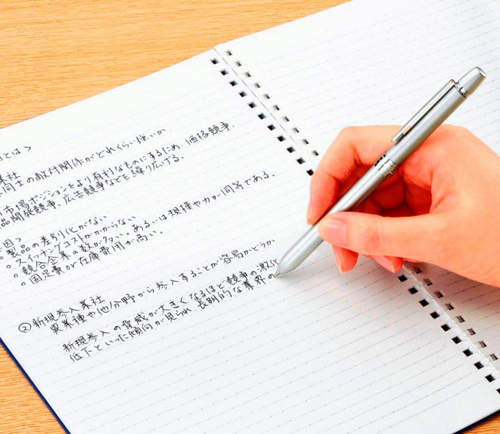 とは>
業社
同士の敵対関係がどれくらい強いか
市場ポジションをより有利なものにするため、価格競争、
品開発競争、広告競争などを繰り広げる。
因>
製品の差別化がない
◦スイッチングコストがかからない
◦競合企業の数が多い。あるいは規模や力が同等である。
◦固定費や在庫費用が高い。
② 新規参入業社
異業種や他分野から参入することが容易かどうか
新規参入の脅威が大きくなるほど競争の激化
低下といった傾向が見られ、長期的な業界の